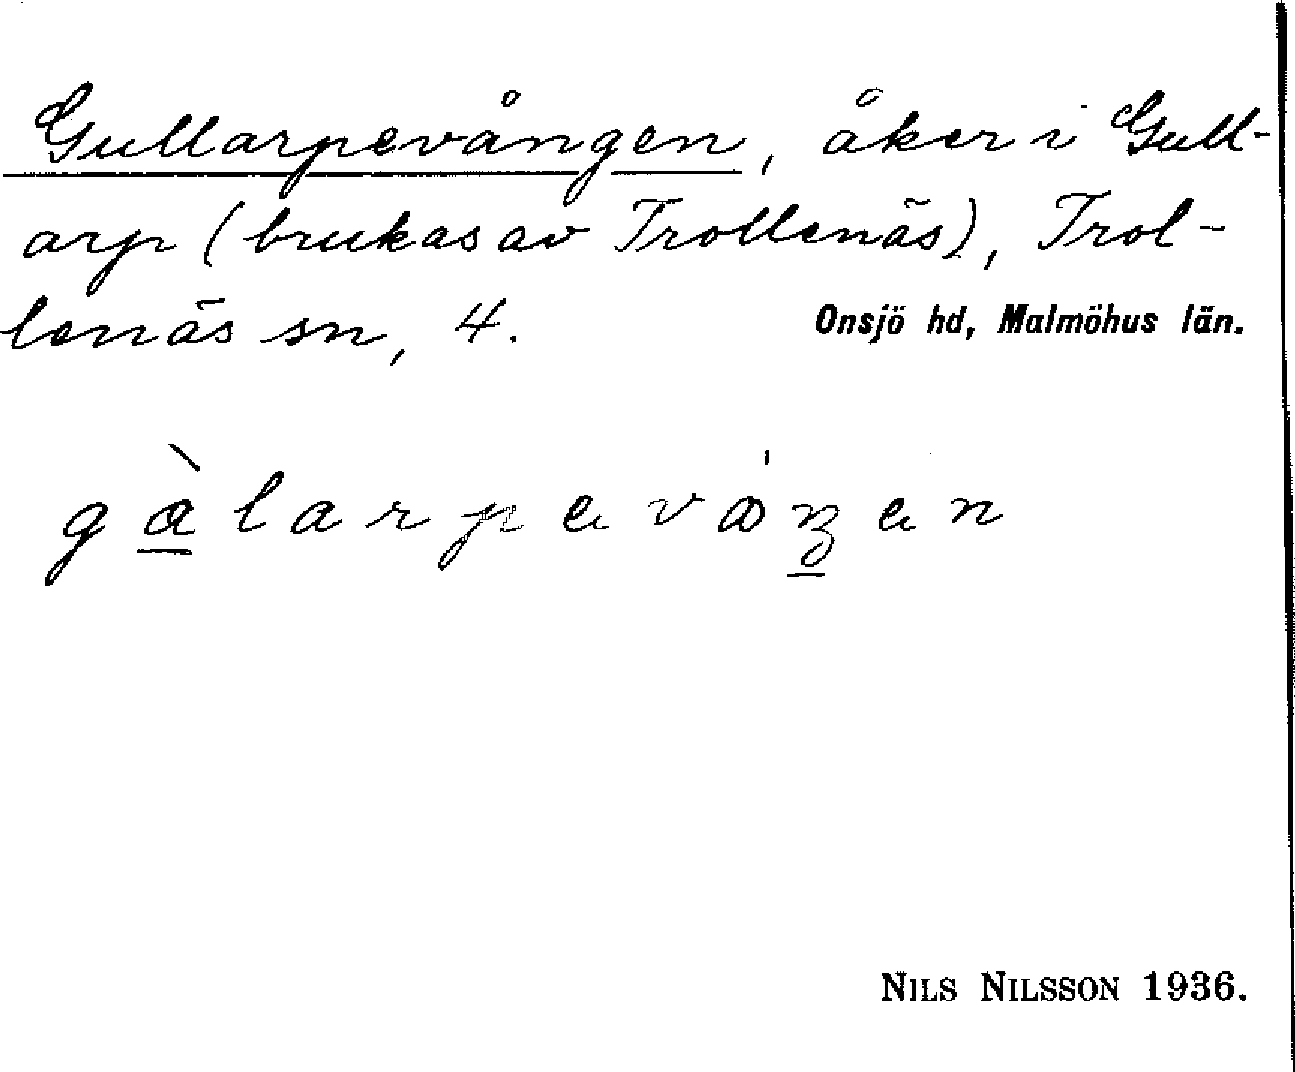 Gullarpevången, åker i Gull-
arp (brukas av Trollenäs), Trol-
lenäs sn, 4. Onsjö hd, Malmöhus län.
gàlarpevaŋen
NILS NILSSON 1936.